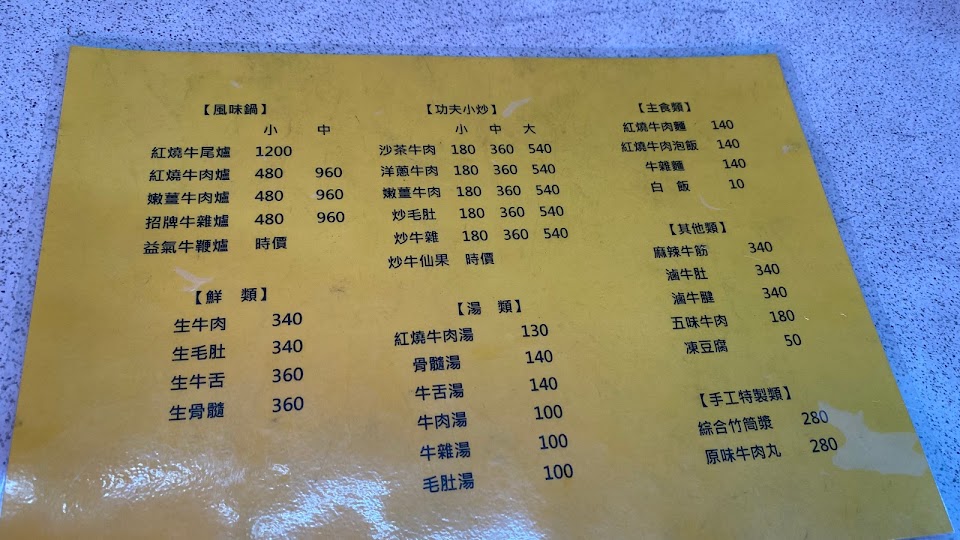 【風味鍋】
小 中
紅燒牛尾爐 1200
紅燒牛肉爐 480 960
嫩薑牛肉爐 480 960
招牌牛雜爐 480 960
益氣牛鞭爐 時價
【鮮 類】
生牛肉 340
生毛肚 340
生牛舌 360
生骨髓 360
【功夫小炒】
小 中 大
沙茶牛肉 180 360 540
洋蔥牛肉 180 360 540
嫩薑牛肉 180 360 540
炒毛肚 180 360 540
炒牛雜 180 360 540
炒牛仙果 時價
【湯 類】
紅燒牛肉湯 130
骨髓湯 140
牛舌湯 140
牛肉湯 100
牛雜湯 100
毛肚湯 100
【主食類】
紅燒牛肉麵 140
紅燒牛肉泡飯 140
牛雜麵 140
白 飯 10
【其他類】
麻辣牛筋 340
滷牛肚 340
滷牛腱 340
五味牛肉 180
凍豆腐 50
【手工特製類】
綜合竹筒漿 280
原味牛肉丸 280